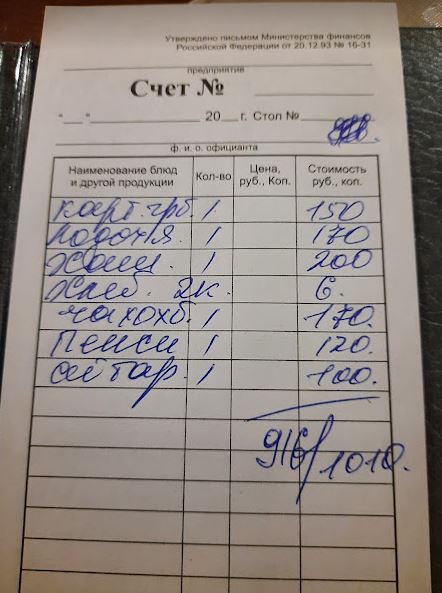 Утверждено письмом Министерства финансов
Российской Федерации от 20.12.93 № 16-31
предприятие
Счет №
"__" 20__ г. Стол №
ф. и. о. официанта
Наименование блюд и другой продукции Кол-во Цена, руб., Коп. Стоимость руб., коп.
карт. грб. 1 150
1 170
Хаш. 1 200
Хлеб. 2к. 6.
чахохб. 1 170.
Пепси 1 120.
1 100.
916/1010.